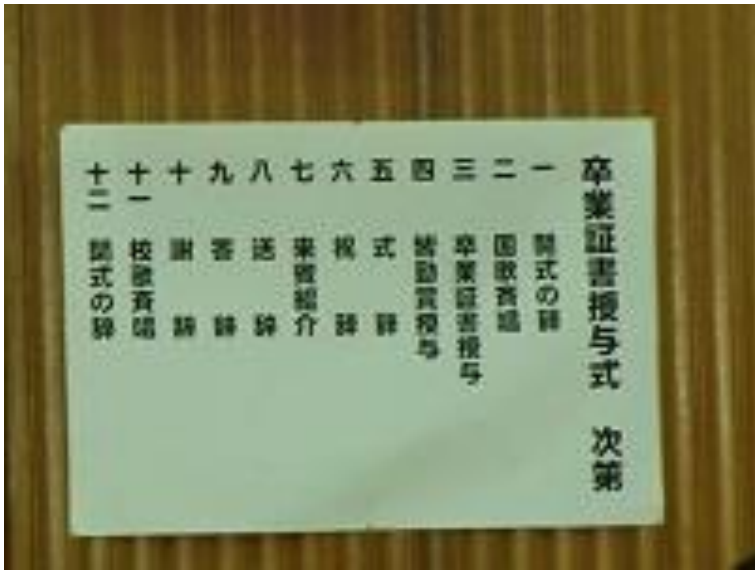 卒業証書授与式 次第
一 開式の辞
二 国歌斉唱
三 卒業証書授与
四 皆勤賞授与
五 式辞
六 祝辞
七 来賓紹介
八 送辞
九 答辞
十 謝辞
十一 校歌斉唱
十二 閉式の辞